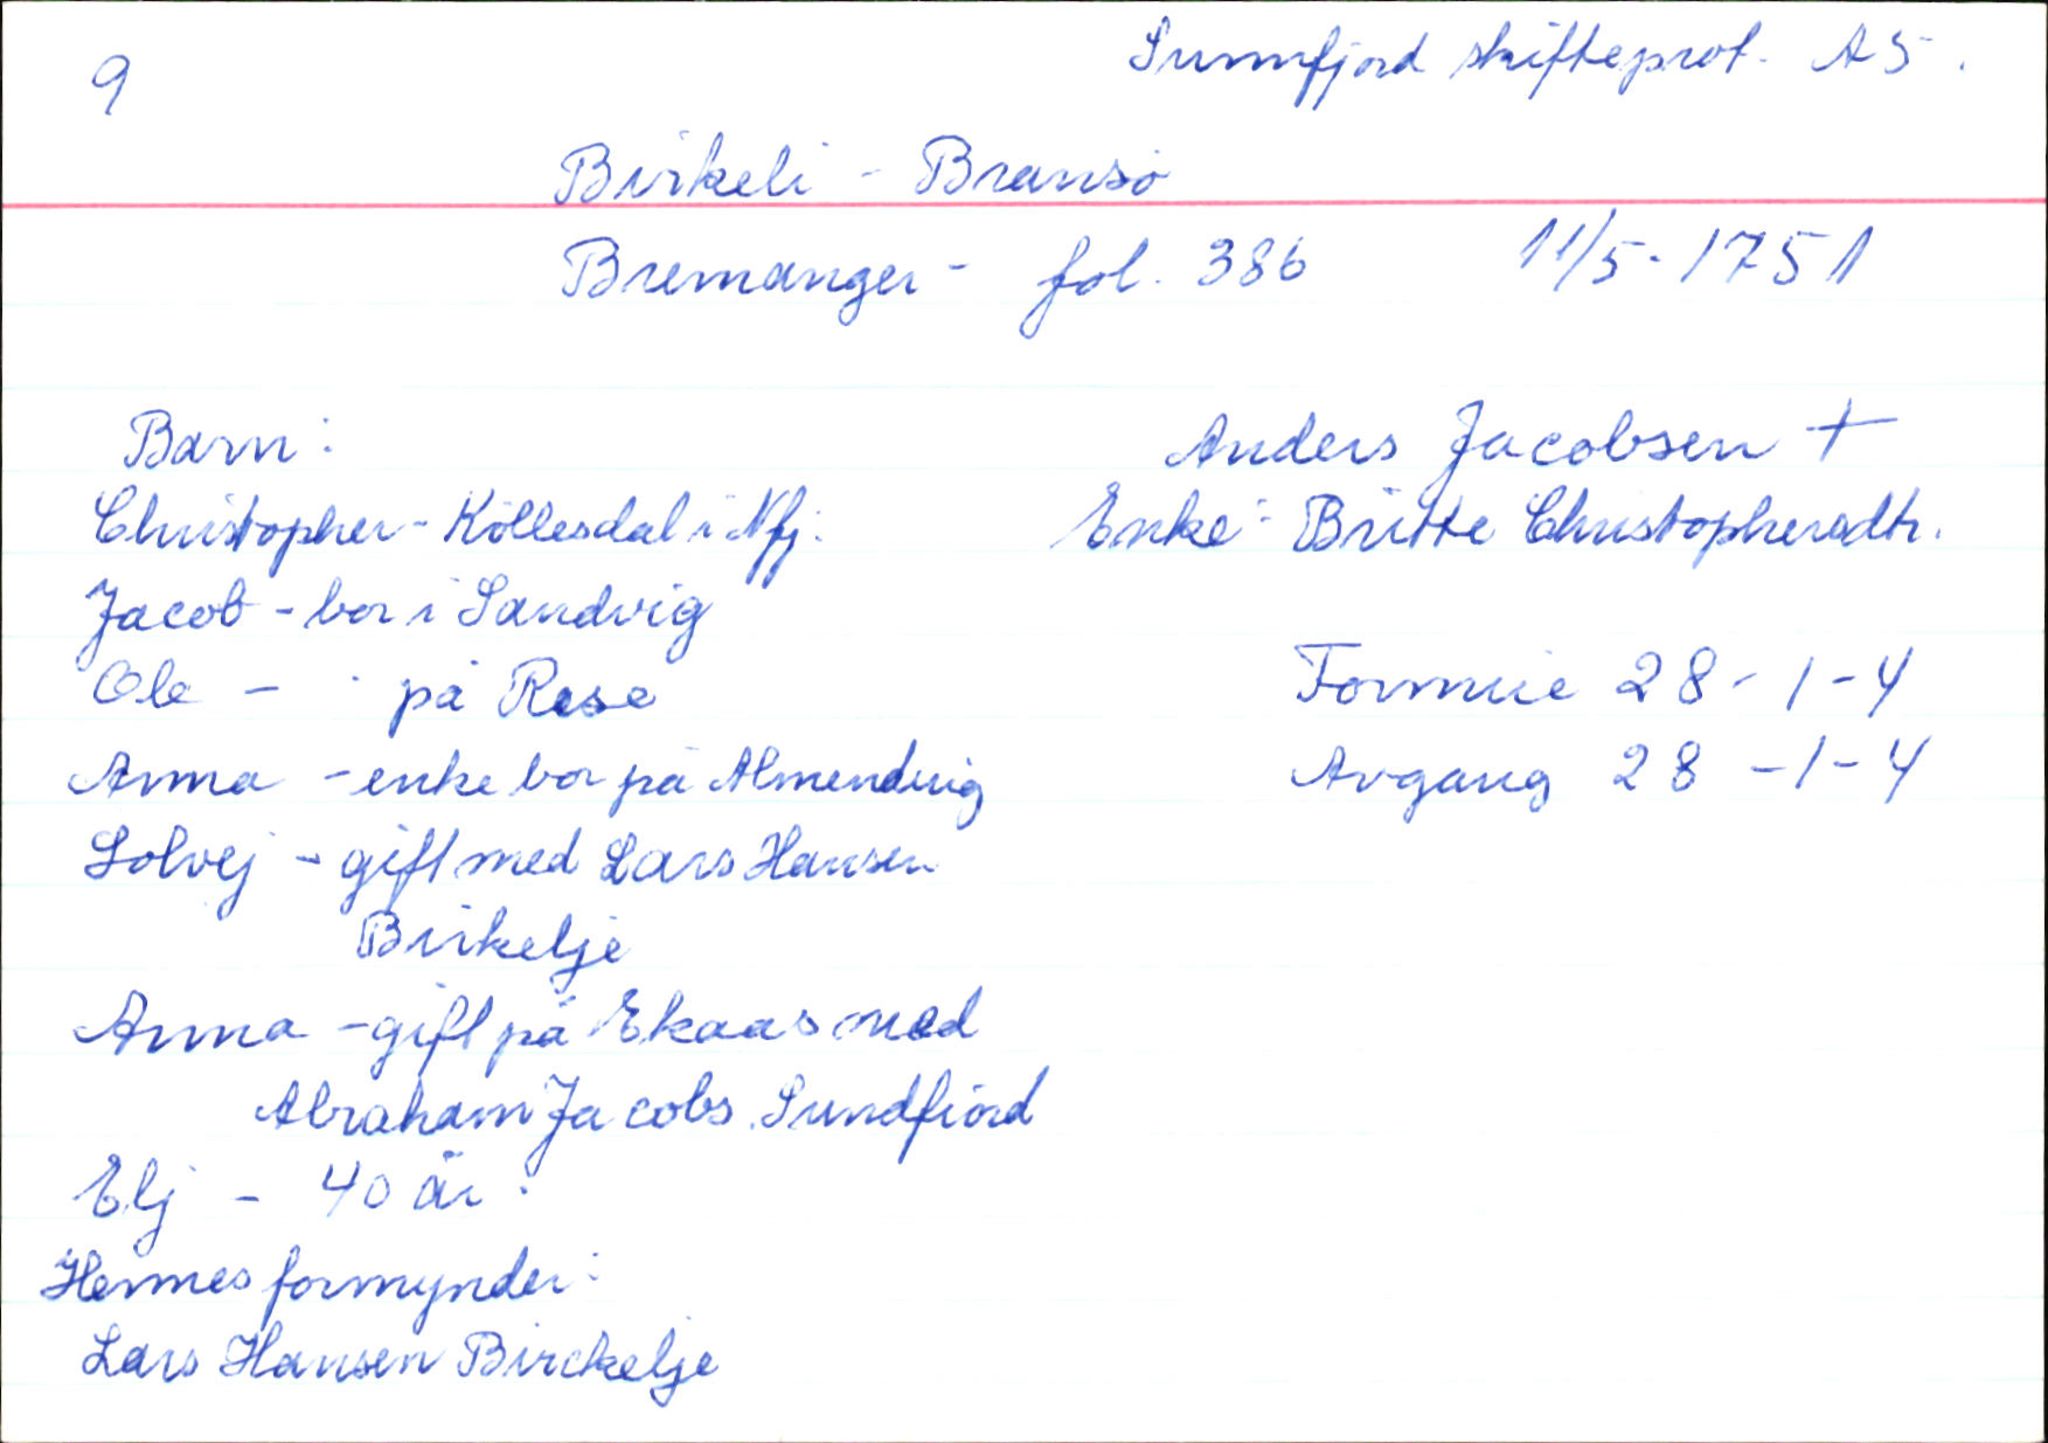 9
Sunnfjord skifteprot. A5.
Birkeli - Bransø
Bremanger - fol. 386 11/5-1751
Barn:
Christopher - Köllesdal i Nfj.
Jacob - bor i Sandvig
Ole - " på Rise
Anna - enke bor på Almendvig
Solvej - gift med Lars Hansen
Birkelje
Anna - gift på Ekaas med
Abraham Jacobs. Sundfiord
Elj - 40 år.
Hennes formynder:
Lars Hansen Birckelje
Anders Jacobsen +
Enke: Britte Christophersdtr.
Formue 28-1-4
Avgang 28-1-4